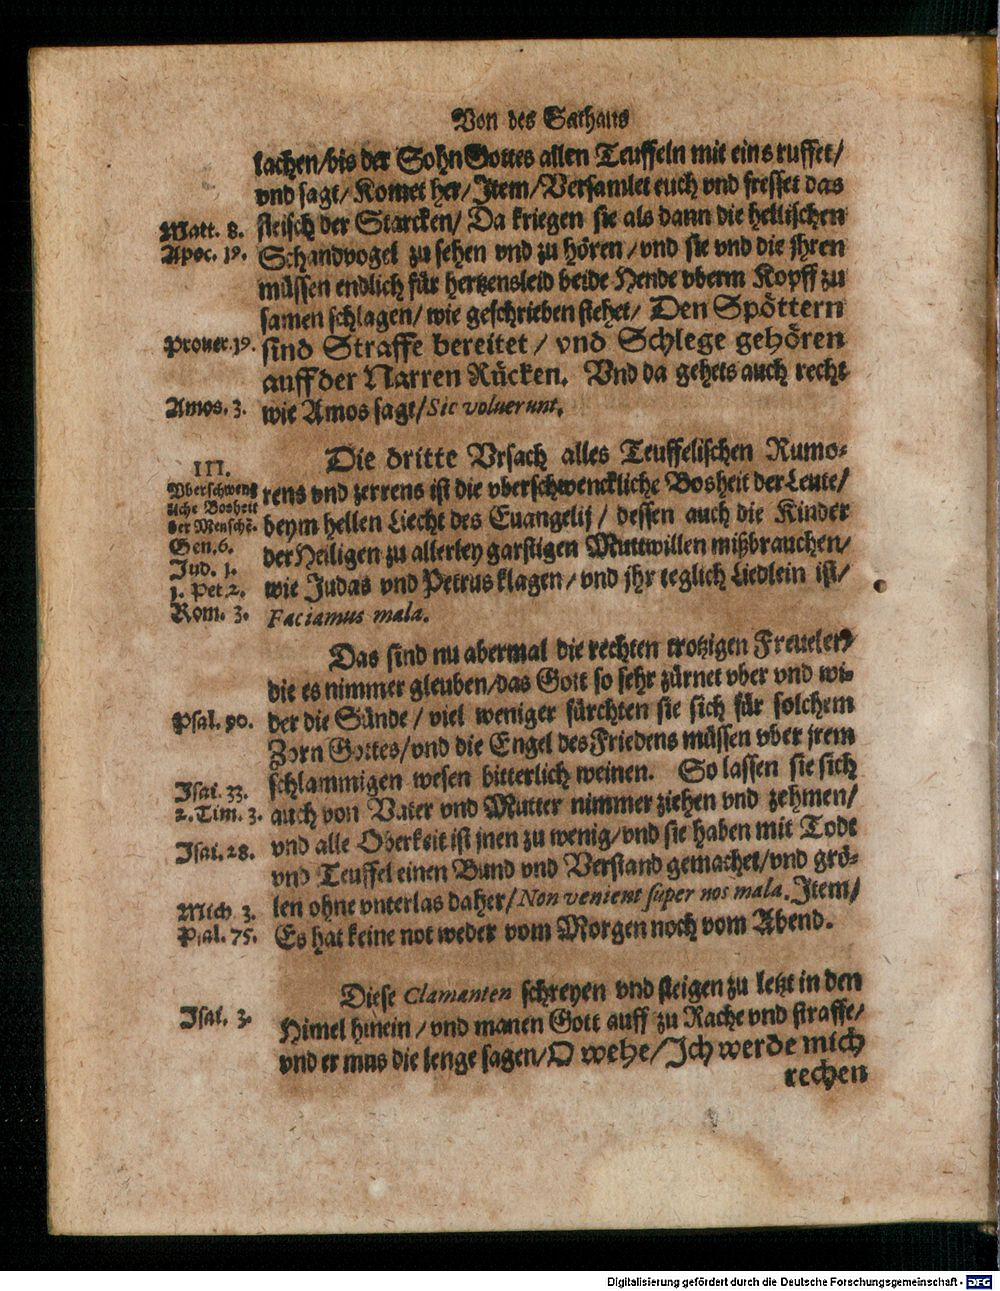 Von des Sathans
lachen/bis der Sohn Gottes allen Teuffeln mit eins ruffet/
vnd sagt/ Komet her/ Item/ Versamlet euch vnd fresset das
Matt. 8. fleisch der Starcken/ Da kriegen sie als dann die hellischen
Apoc. 19. Schandvogel zu sehen vnd zu hören/ vnd sie vnd die jhren
müssen endlich für hertzensleid beide Hende vberm Kopff zu
samen schlagen/ wie geschrieben stehet/ Den Spöttern
Prouer. 19. sind Straffe bereitet/ vnd Schlege gehören
auff der Narren Rücken. Vnd da gehets auch recht
Amos. 3. wie Amos sagt/ Sic voluerunt.
III. Die dritte Vrsach alles Teuffelischen Rumo-
Vberschweng rens vnd zerrens ist die vberschwenckliche Bosheit der Leute/
liche Bosheit
der Menschē. beym hellen Liecht des Euangelij/ dessen auch die Kinder
Gen. 6. der Heiligen zu allerley garstigen Muttwillen mißbrauchen/
Jud. 1.
1. Pet. 2. wie Judas vnd Petrus klagen/ vnd jhr teglich Liedlein ist/
Rom. 3. Faciamus mala.
Das sind nu abermal die rechten trotzigen Freueler/
die es nimmer gleuben/ das Gott so sehr zürnet vber vnd wi-
Psal. 90. der die Sünde/ viel weniger fürchten sie sich für solchem
Zorn Gottes/ vnd die Engel des Friedens müssen vber jrem
Isai. 33. schlammigen wesen bitterlich weinen. So lassen sie sich
2. Tim. 3. auch von Vater vnd Mutter nimmer ziehen vnd zehmen/
Isai. 28. vnd alle Oberkeit ist jnen zu wenig/ vnd sie haben mit Todt
vnd Teuffel einen Bund vnd Verstand gemachet/ vnd grö-
Mich 3. len ohne vnterlas daher/ Non venient super nos mala. Item/
Psal. 75. Es hat keine not weder vom Morgen noch vom Abend.
Diese Clamanten schreyen vnd steigen zu letzt in den
Isai. 3. Himel hinein/ vnd manen Gott auff zu Rache vnd straffe/
vnd er mus die lenge sagen/ O wehe/ Ich werde mich
rechen
Digitalisierung gefördert durch die Deutsche Forschungsgemeinschaft - DFG